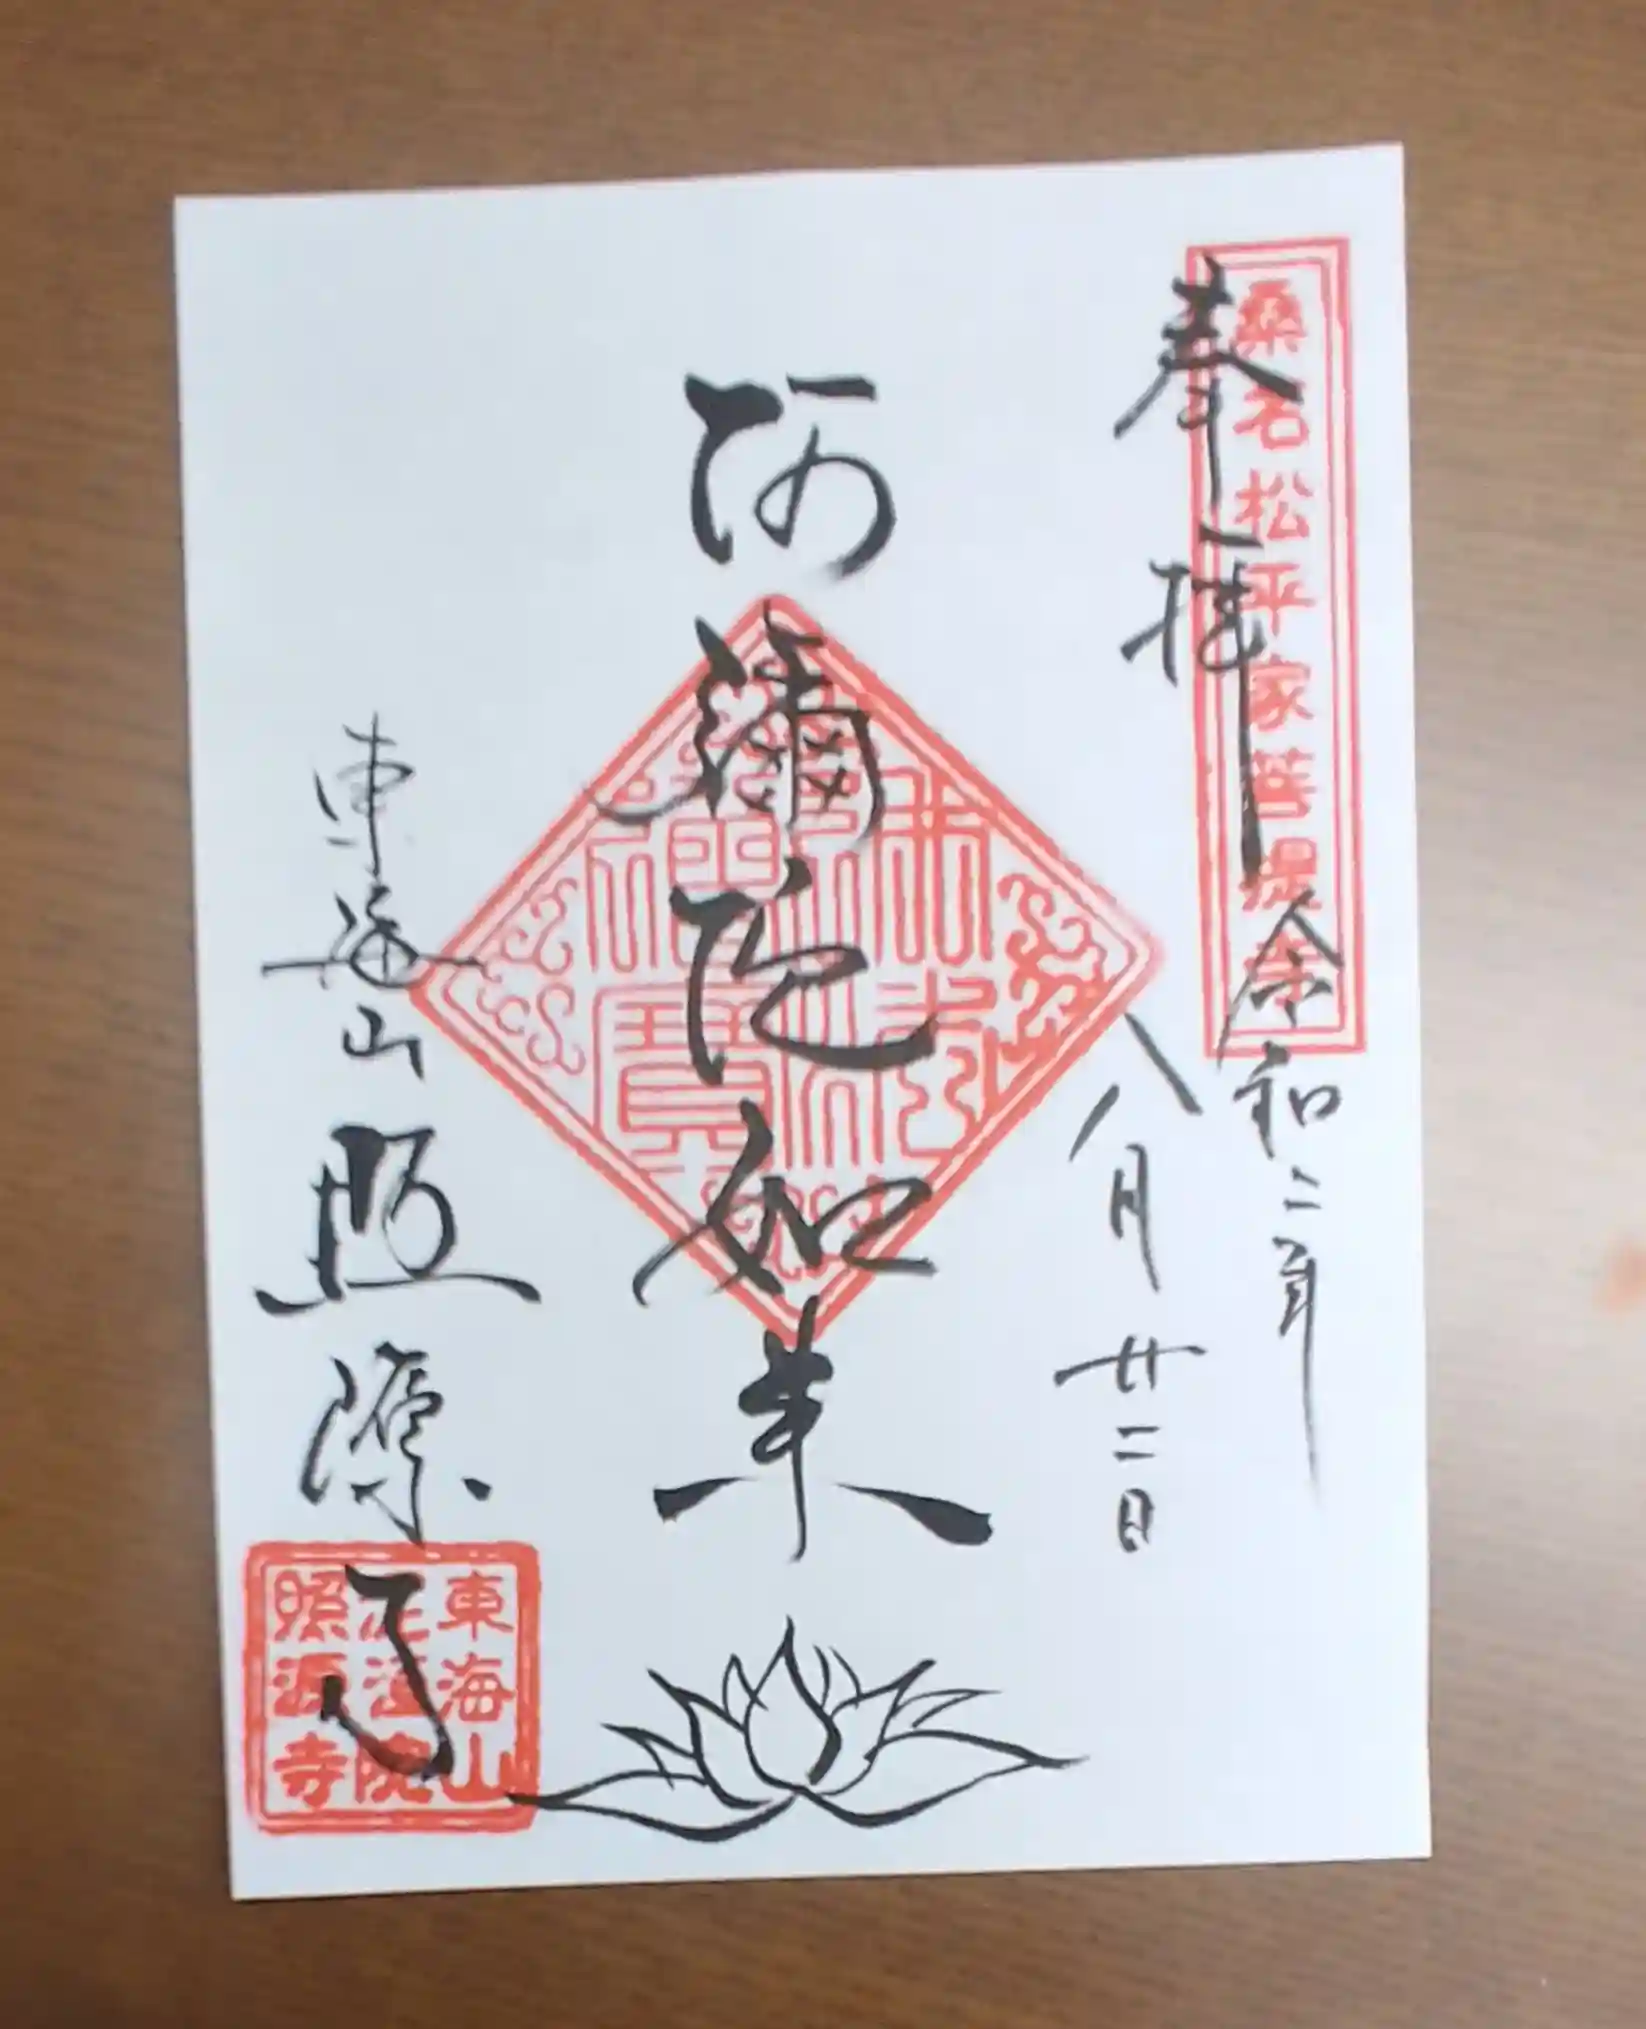 奉拝
桑名松平家菩提寺
令和二年
八月廿二日
阿彌陀如来
佛法僧寶
東海山
照源寺
東海山
泥洹院
照源寺